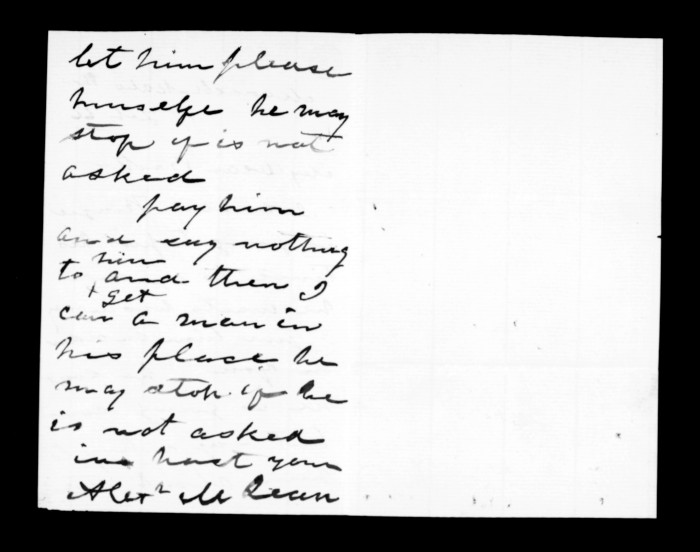 let him please
himself he may
stop if is not
asked
pay him
and say nothing
to him and then I
can get a man in
his place he
may stop if he
is not asked
in hast your
Alexr McLean